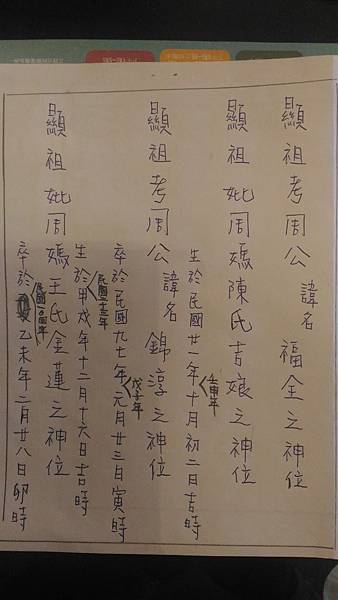 顯祖考周公諱名福全之神位
顯祖妣周媽陳氏吉娘之神位
生於民國廿一年十月初二日吉時
壬申年
顯祖考周公諱名錦淳之神位
卒於民國九七年元月廿三日寅時
戊子年
生於甲戌年十二月十六日吉時
民國二十三年
顯祖妣周媽王氏金蓮之神位
卒於乙未年二月廿八日卯時
民國一0四年